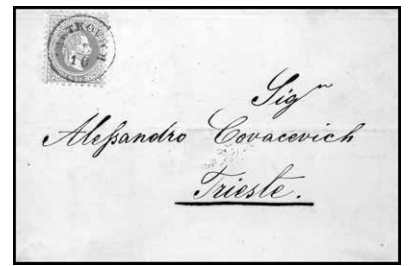 16
Sigr
Alessandro Covacevich
Trieste.